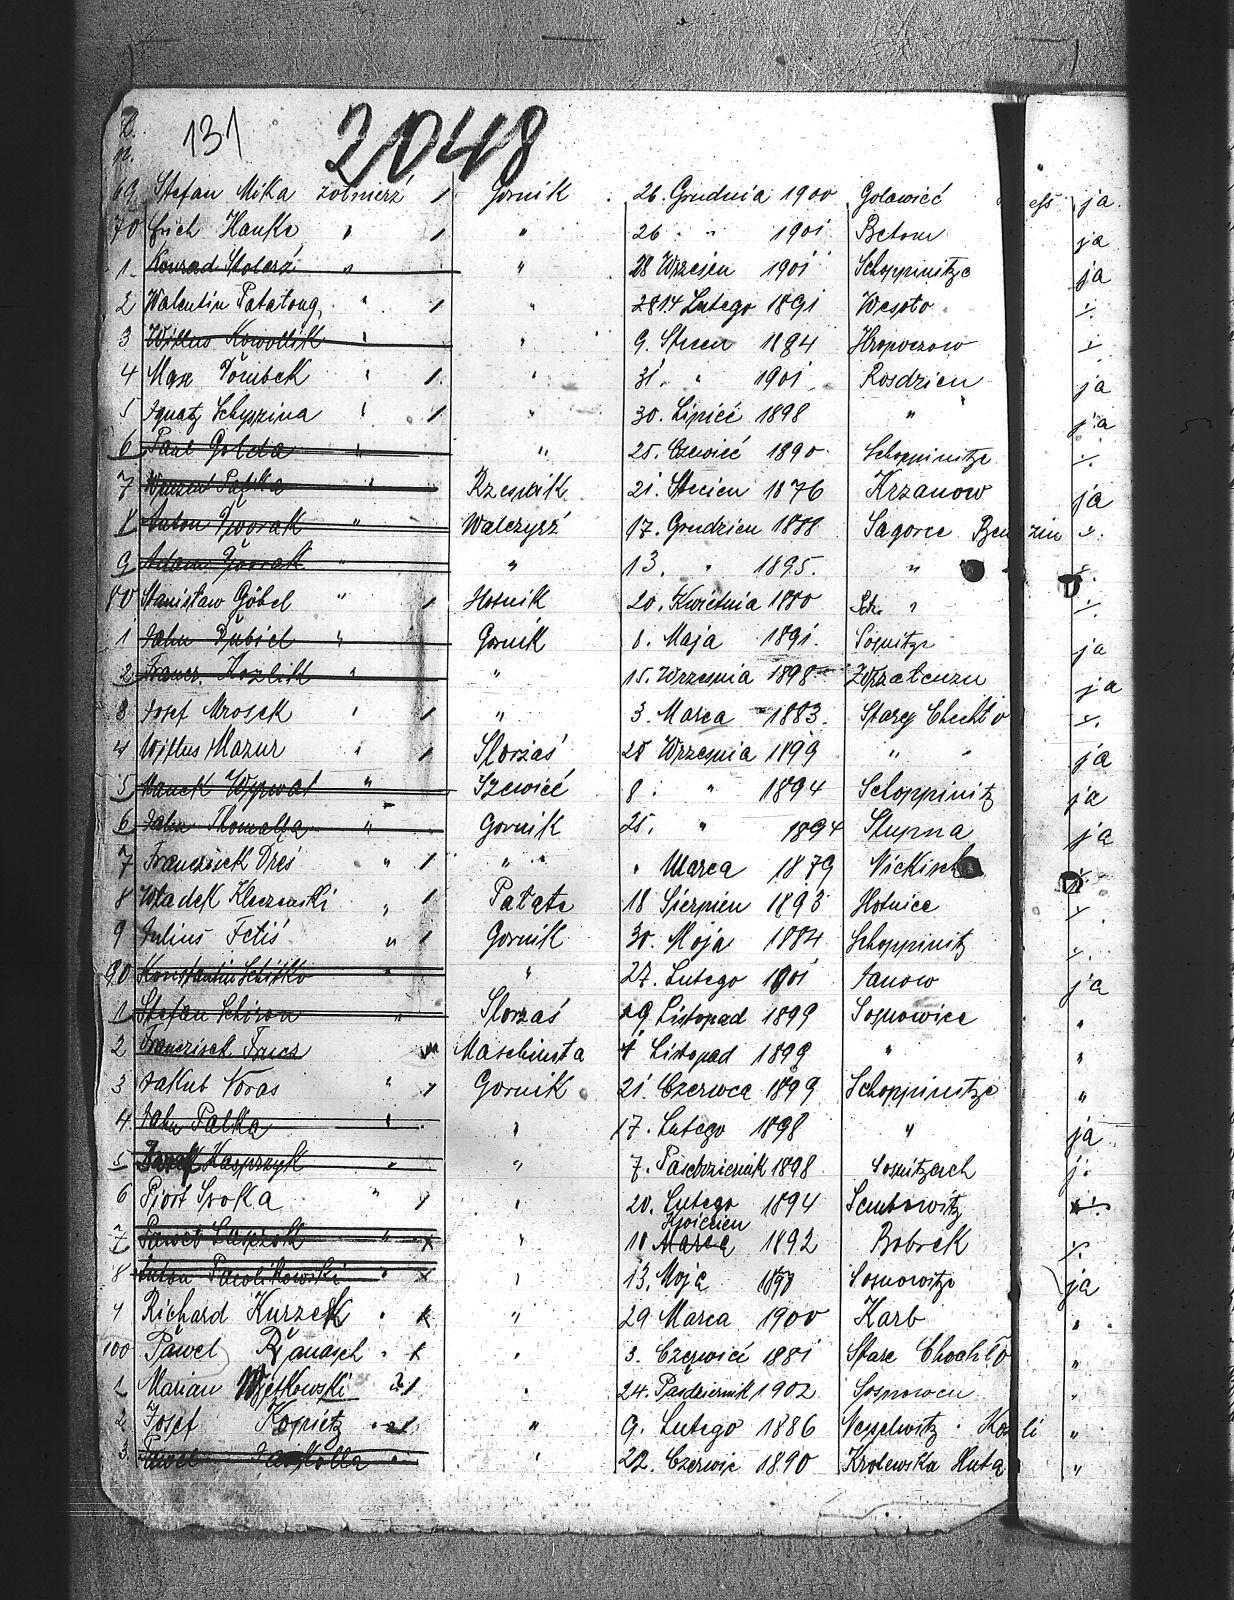 L.
p.
131
2048
69 Stefan Mika żołnierź / Gornik 26. Grudnia 1900 Golawieć ja.
70 Erich Hanke " / " 26 " 1901 Betom ja
1 Konrad Stolarź " " 28 Wrzesien 1901 Schoppinitze ja
2 Walentin Patalong " / " 2814 Lutego 1891 Wesoło ./.
3 " " 9. Stycen 1894 Hropaczow ./.
4 Max Tömbek " / " 31. " 1901. Rosdzien ja
5 Ignatz Schyszina " / " 30. Lipieć 1898 " ja
6 Paul Golda " " 25. Czewieć 1890 Schoppinitze ./.
7 " Rzesnik 21. Stycien 1876 Krzanow ja
8 Anton Dworak " Walczyrź 17. Grudzien 1888 Sagorce Benzin ./.
9 Adam Dworak " " 13. " 1895. " ./.
80 Stanisław Göbel " / Hotnik 20. Kwietnia 1880 Sch. " ./.
1 Jahn Dubiel " Gornik 8. Maja 1891. Sosnitze ja
2 Francz. Kozlik " " 15. Wrzesnia 1898 ja
3 Josef Mrosek " / " 3. Marca 1883. Starey Chechło ./.
4 Wiktus Mazur " / Slorzaś 28 Wrzesnia 1899 " " ja
5 Manek Wypwal " Szewieć 8. " 1894 Schoppinitz ja
6 Jahn Thomalla " Gornik 25. " 1894 Slupna ja
7 Francziszek Dreś " / " " Marca 1879 Nickisch ./.
8 Władek Kleczewski " / 18 Sierpien 1893 Hotnice ./.
9 Julius Fetiś " / Gornik 30. Moja 1884 Schoppinitz ./.
90 Konstantin Schitko " " 27. Lutego 1901 Janow ja
1 Stefan Schiron " Slorzaś 29. Listopad 1899 Sosnowice "
2 Franczisek Frucs Maschinsta 4 Listopad 1899 " "
3 Jakub Noras " / Gornik 21. Czerwca 1899 Schoppinitze "
4 Jahn Palka " " 17. Lutego 1898 " ja
5 Kasprzyk " " 7. Pasdziernik 1898 Sosnitzach j.
6 Pjort Sroka " / " 20. Lutego 1894 Sembowitz ./.
Kwiecien
7 Paweł Laszzok " x " 10 Marca 1892 Bobrek ./.
8 Anton Pawlikowski " x " 13. Moja 1898 Sosnowitze ja
9 Richard Kurzek " x " 29 Marca 1900 Karb "
100 Paweł Rzanasch " x " 3. Czerwieć 1881 Stare Chochło "
1 Marian Wjetkowski ? / " 24. Pasdziernik 1902 Sosnowcu "
2 Josef Kopietz " / " 9. Lutego 1886 Nesselwitz . Kosli "
3 Paweł " " 22. Czerwic 1890 Krolewska Huta "